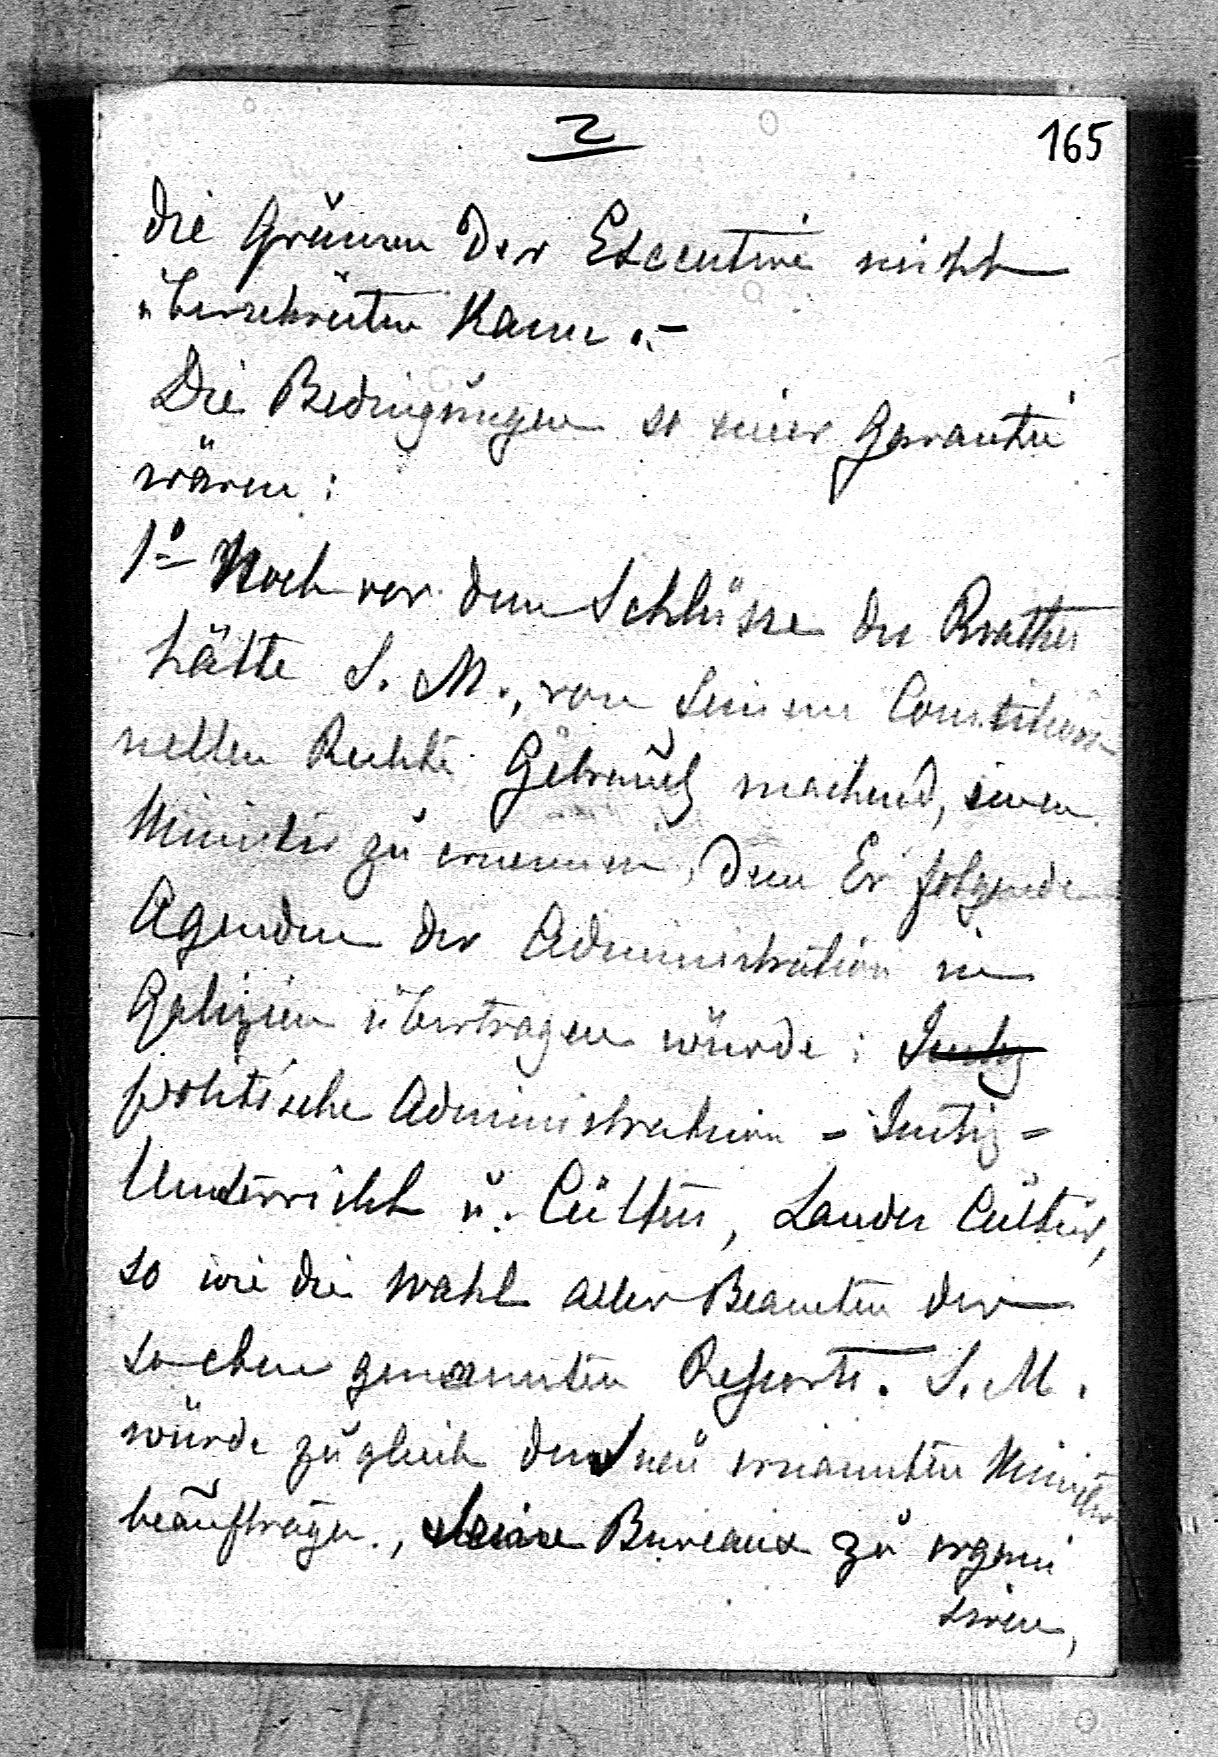 2
165
die Gränzen der Executive nicht
überschreiten kann.–
Die Bedingungen so einer Garantie
wären:
1º– Noch vor dem Schlusse des Rrathes
hätte S. M., von Seinem Constitutio-
nellen Rechte Gebrauch machend, einen
Minister zu ernennen, dem Er folgende
Agenden der Administration in
Galizien übertragen würde: Justiz
politische Administration - Justiz -
Unterricht u. Cultus, Landes Cultur,
so wie die Wahl aller Beamten der
so eben genannten Ressorts. S. M.
würde zugleich den neu ernannten Minister
beauftragen, seine Bureaux zu organi
siren,